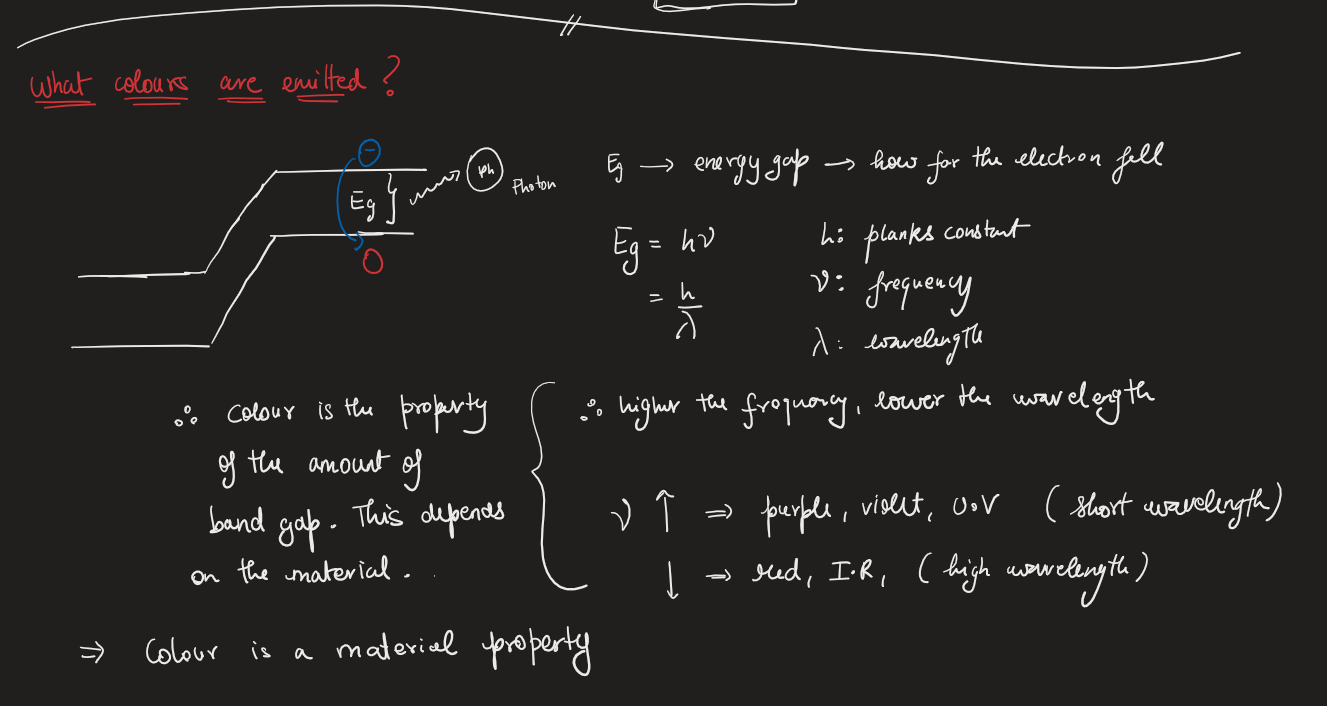 What colours are emitted?
−
Eg
Ph
Photon
Eg → energy gap → how far the electron fell
Eg = hν
= h/λ
h: planks constant
ν: frequency
λ: wavelength
∴ colour is the property
of the amount of
band gap. This depends
on the material.
∴ higher the frequency, lower the wavelength
ν ↑ ⇒ purple, violet, U.V (short wavelength)
↓ ⇒ red, I.R, (high wavelength)
⇒ Colour is a material property